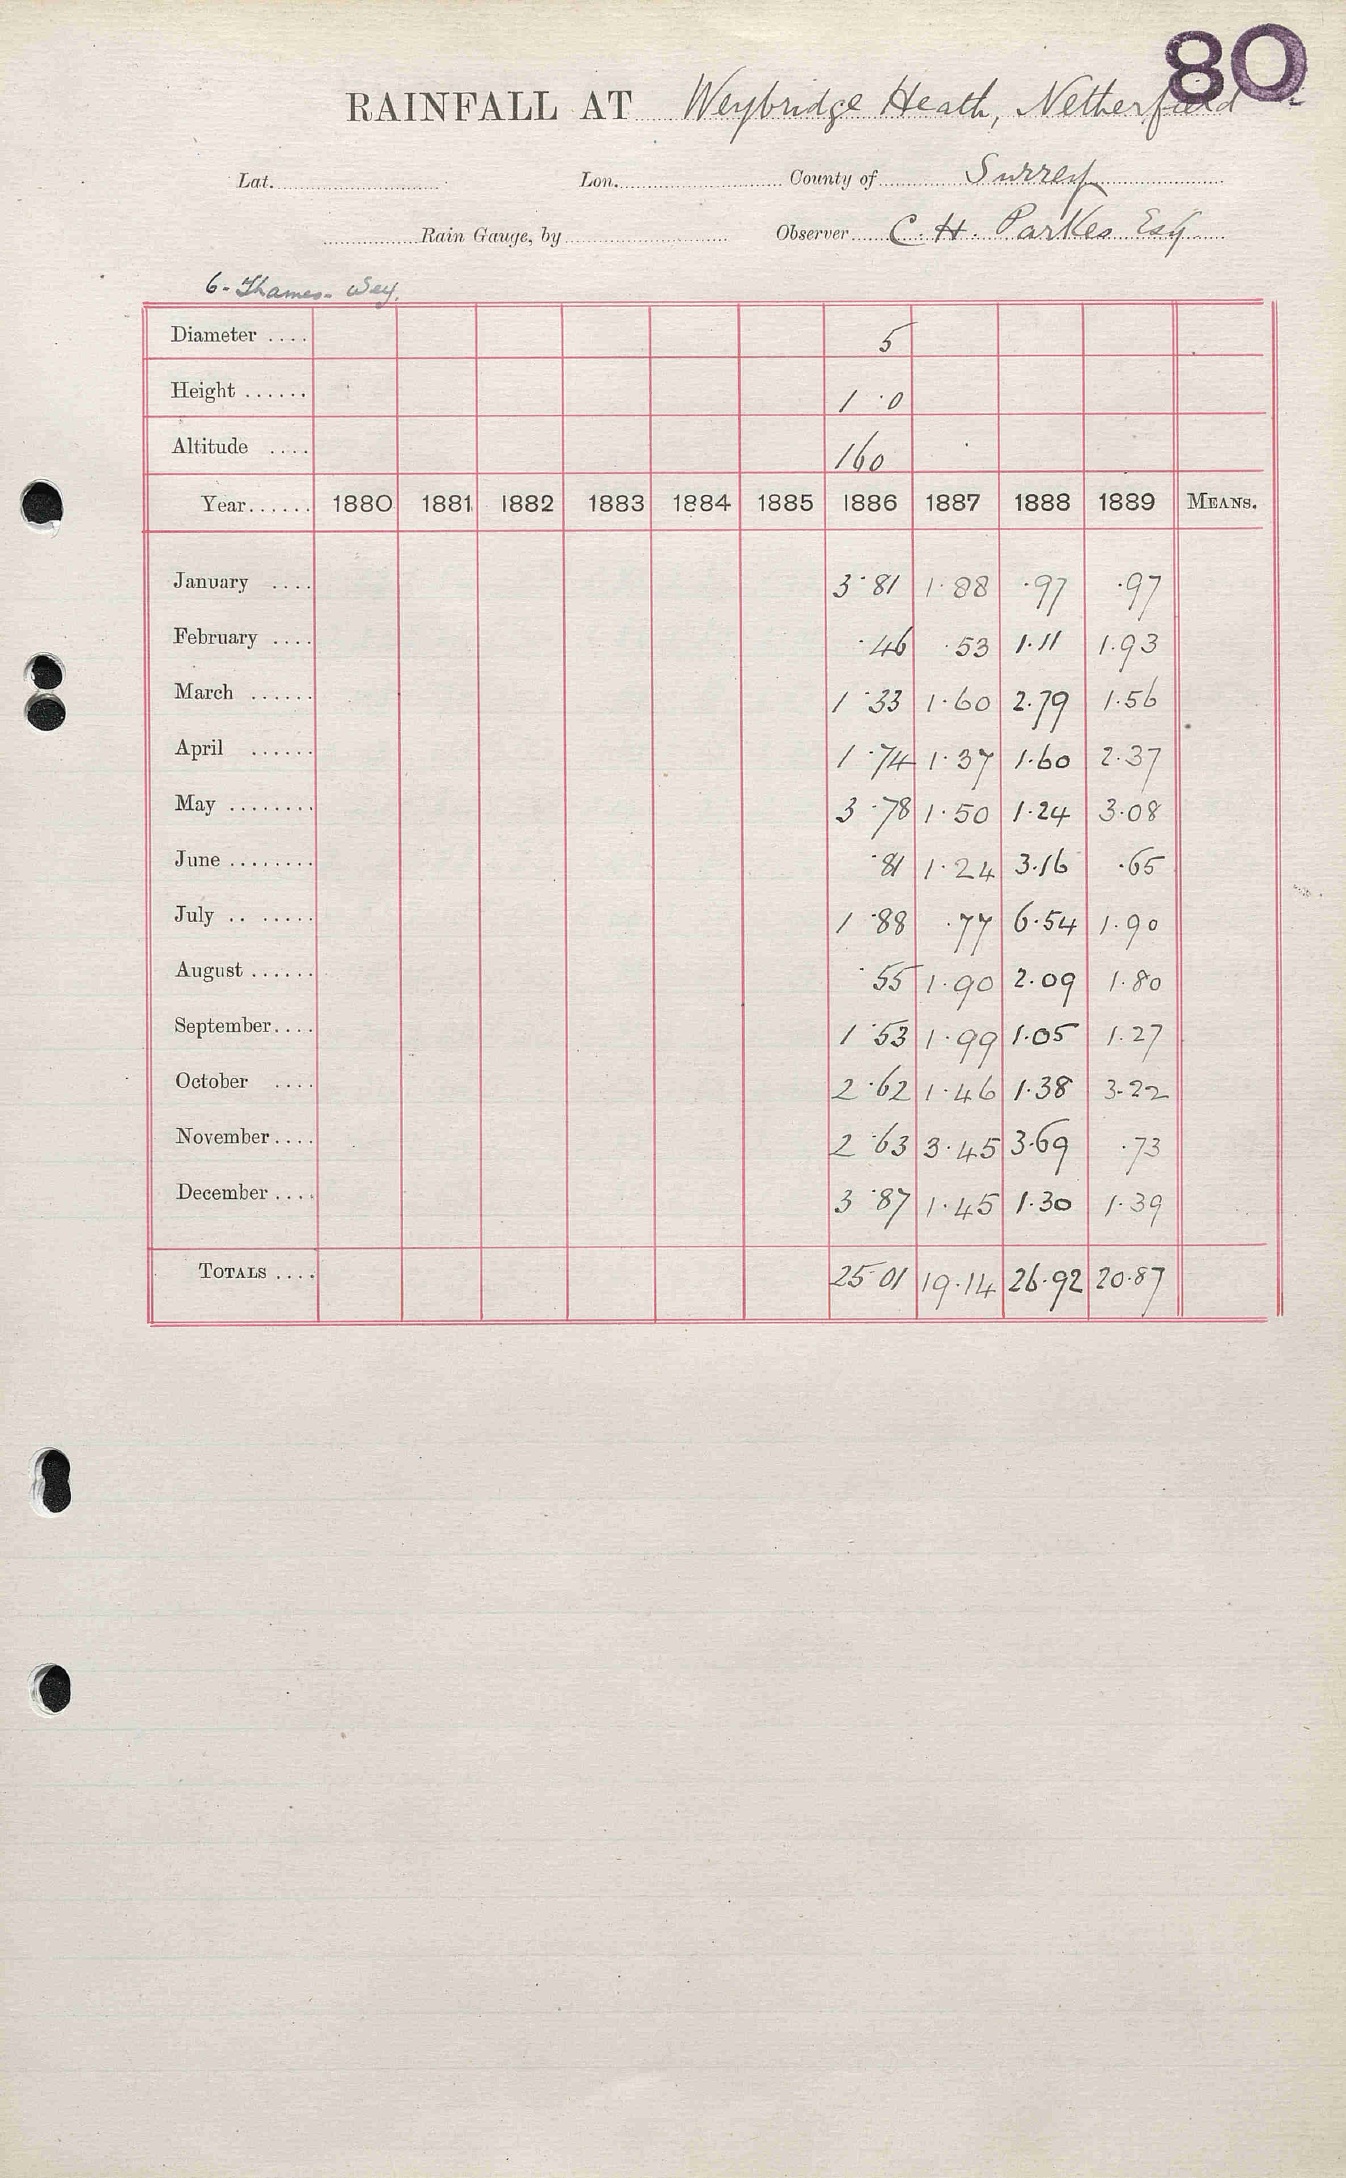 80
RAINFALL AT Weybridge Heath, Netherfield
Lat. Lon. County of Surrey
Rain Gauge, by Observer C. H. Parkes Esq
6 - Thames - Wey.
Diameter .... 5
Height ...... 1 · 0
Altitude .... 160
Year...... 1880 1881 1882 1883 1884 1885 1886 1887 1888 1889 MEANS.
January .... 3·81 1·88 ·97 ·97
February .... ·46 ·53 1·11 1·93
March ...... 1·33 1·60 2·79 1·56
April ...... 1·74 1·37 1·60 2·37
May ........ 3·78 1·50 1·24 3·08
June ........ ·81 1·24 3·16 ·65
July .. ..... 1·88 ·77 6·54 1·90
August ...... ·55 1·90 2·09 1·80
September.... 1·53 1·99 1·05 1·27
October .... 2·62 1·46 1·38 3·22
November.... 2·63 3·45 3·69 ·73
December .... 3·87 1·45 1·30 1·39
TOTALS .... 25·01 19·14 26·92 20·87